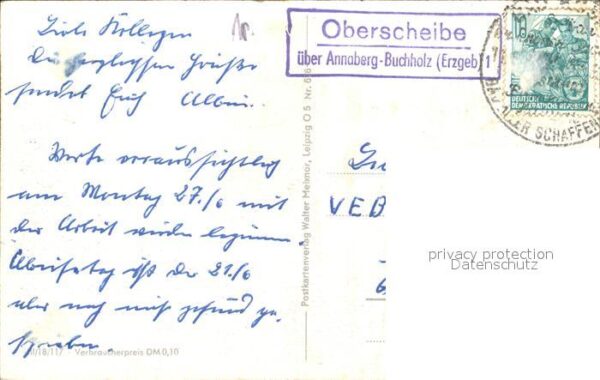 Liebe Kollegen
Die herzlichsten Grüße
sendet Euch Albin.
Werde voraussichtlich
am Montag 27./6 mit
der Arbeit wieder beginnen.
ist der 21./6
aber noch nicht gesund ge-
schrieben.
III/18/117 Verbraucherpreis DM 0,10
Postkartenverlag Walter Meixner, Leipzig O 5 Nr.
Oberscheibe
über Annaberg-Buchholz (Erzgeb) 1
10
DEUTSCHE
DEMOKRATISCHE REPUBLIK
DER SCHAFFEN
VEB
privacy protection
Datenschutz